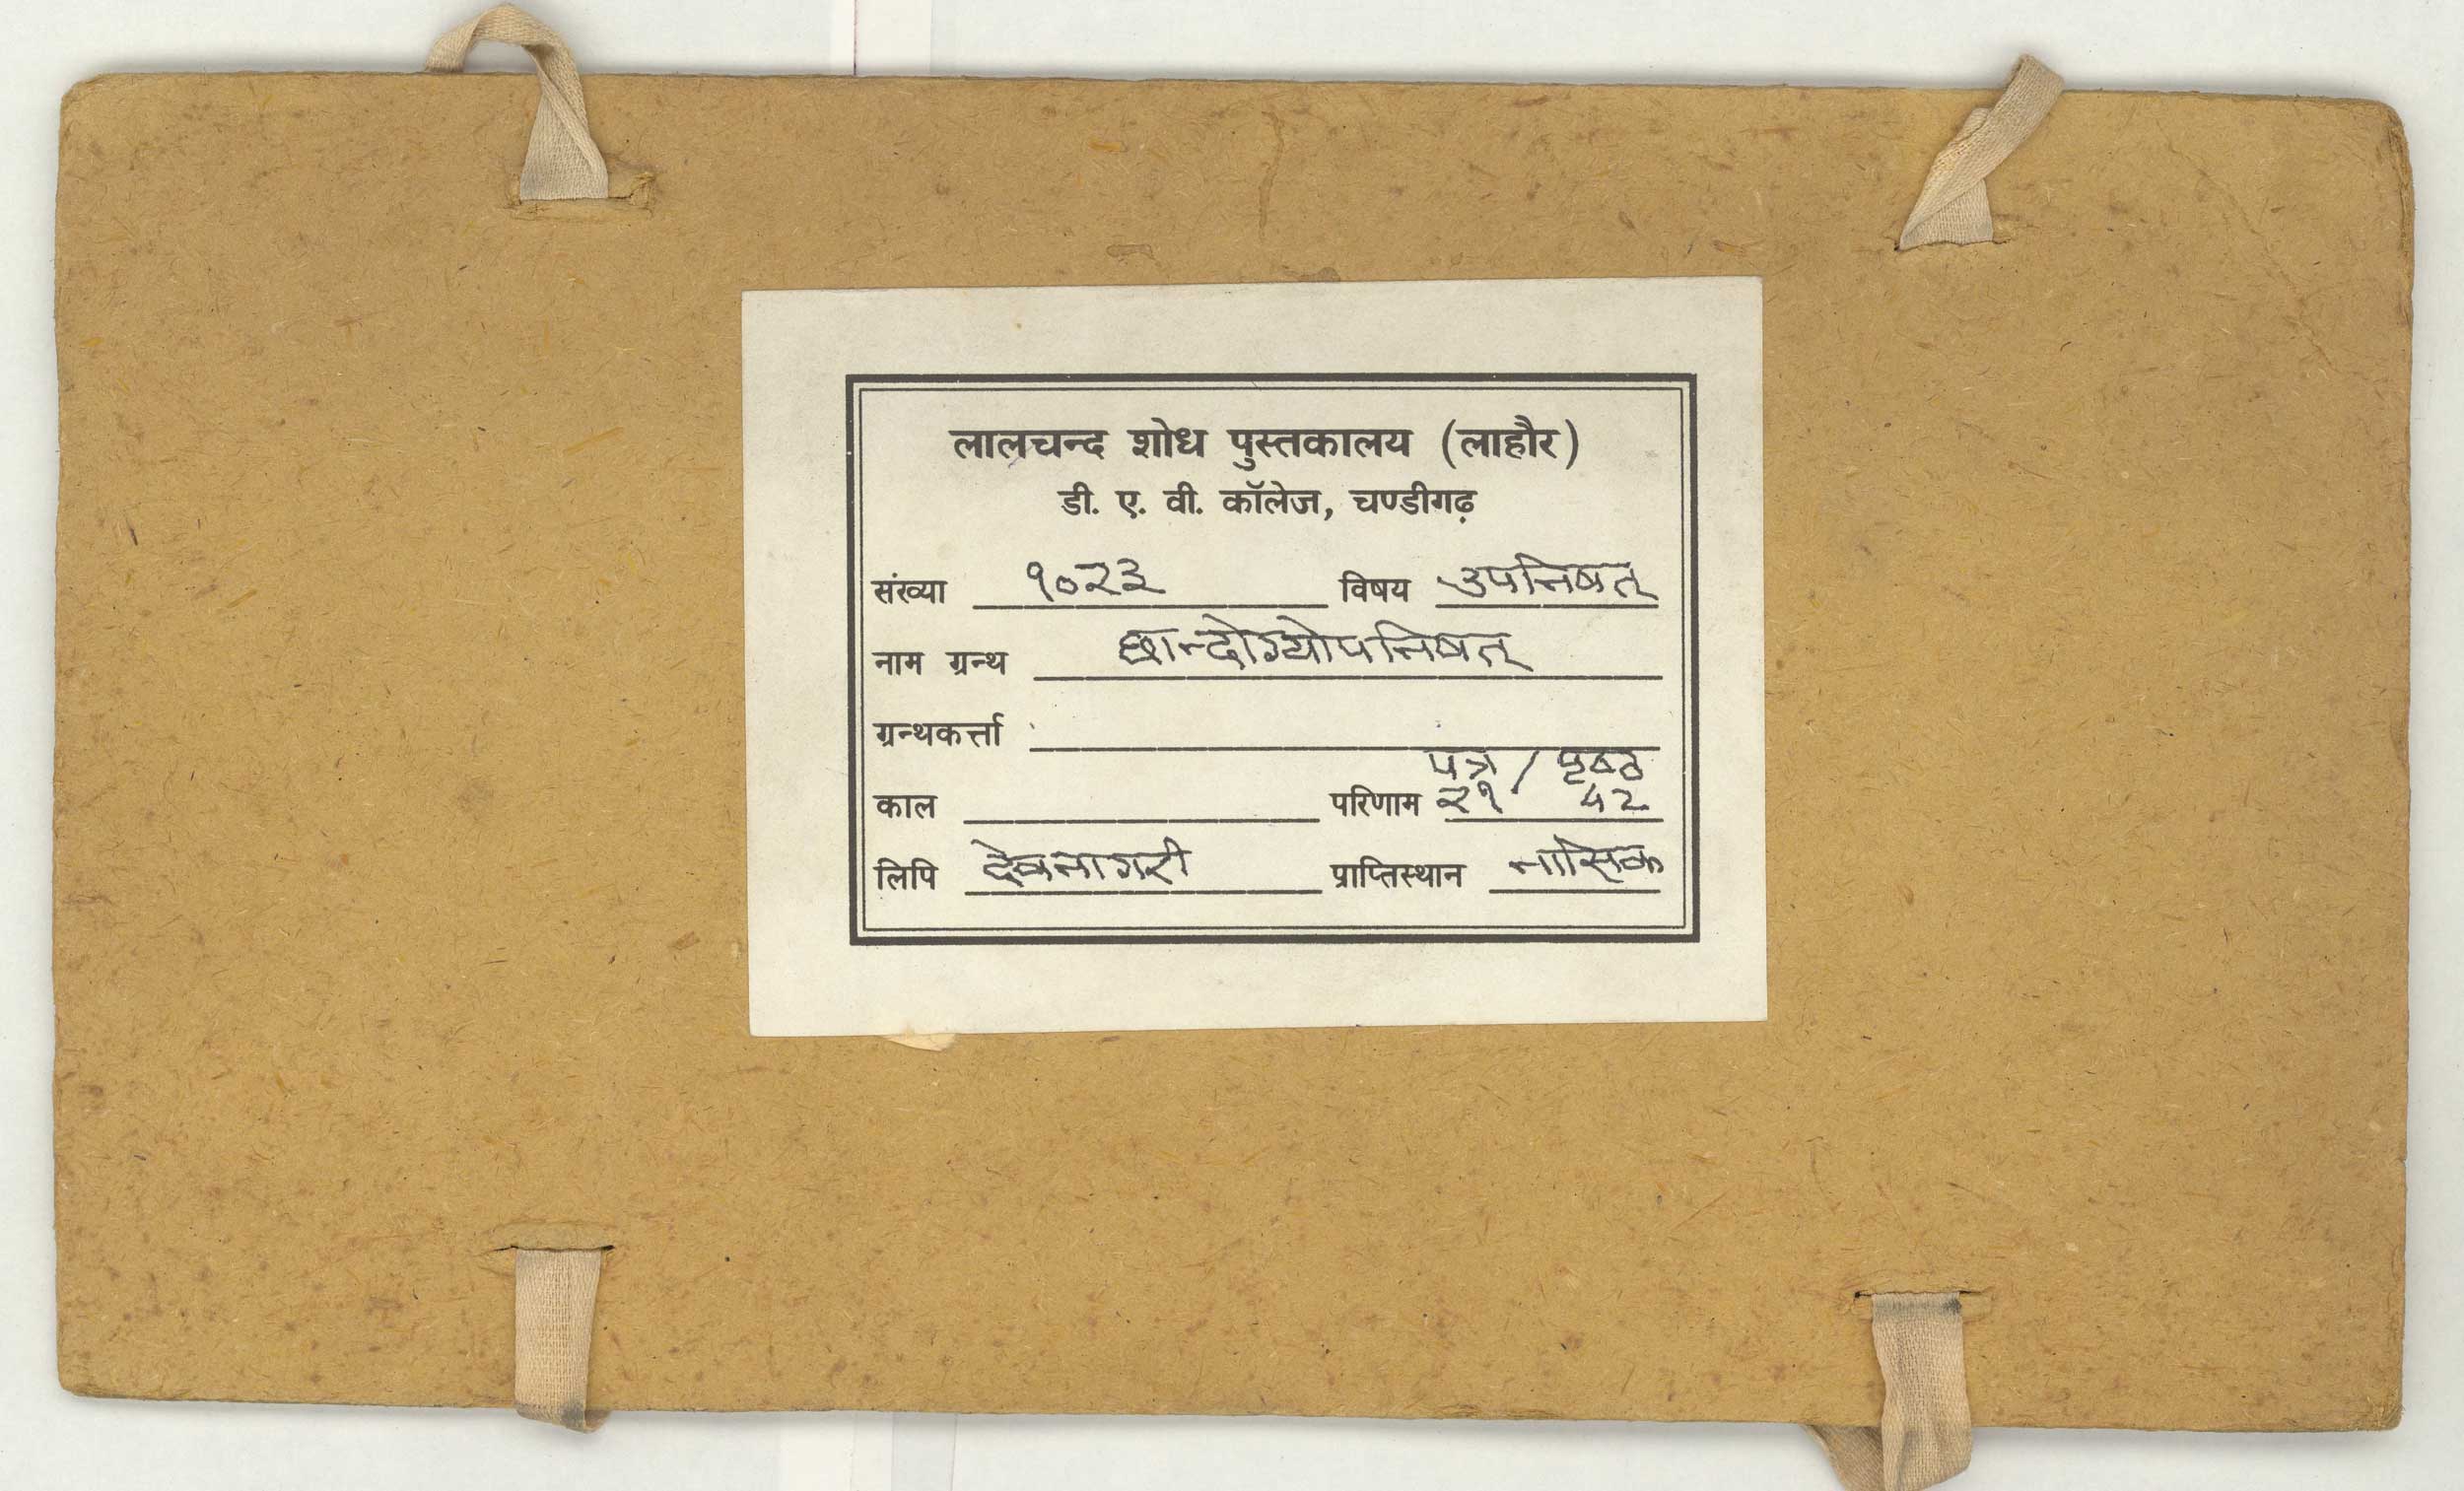 लालचन्द शोध पुस्तकालय (लाहौर)
डी. ए. वी. कॉलेज, चण्डीगढ़
संख्या १०२३ विषय उपनिषत्
नाम ग्रन्थ छान्दोग्योपनिषत्
ग्रन्थकर्त्ता
पत्र / पृष्ठ
काल परिणाम २१ 42
लिपि देवनागरी प्राप्तिस्थान नासिक